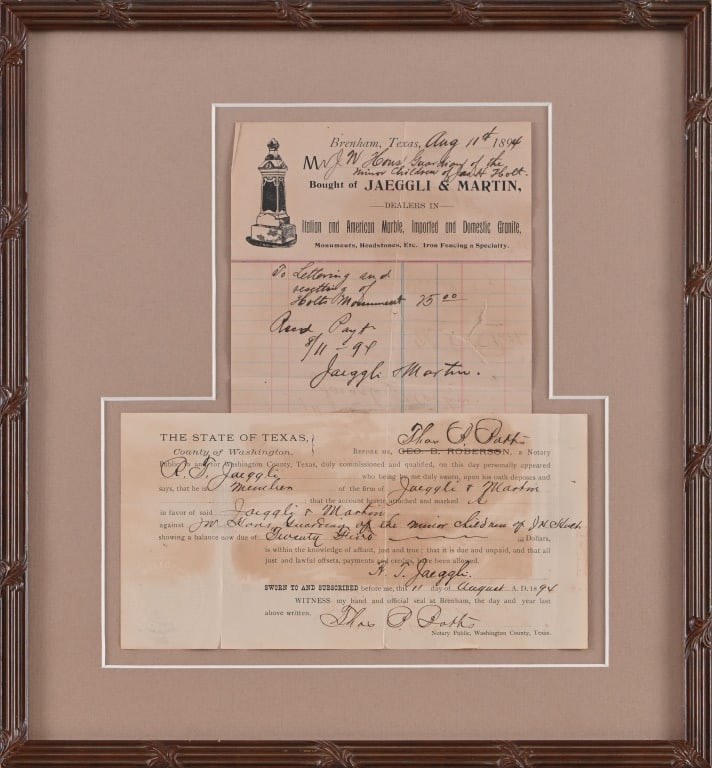 Brenham, Texas, Aug 11th 1894
Mr J. W. Hons, Guardian of the
minor children of Jas H Holt.
Bought of JAEGGLI & MARTIN,
DEALERS IN
Italian and American Marble, Imported and Domestic Granite,
Monuments, Headstones, Etc. Iron Fencing a Specialty.
To Lettering and
resetting of
Holts Monument 25 00
Recd Payt
8/11 - 94
Jaeggli Martin.
THE STATE OF TEXAS,
County of Washington.
Thos P.
BEFORE ME, GEO. B. ROBERSON, a Notary
Public in and for Washington County, Texas, duly commissioned and qualified, on this day personally appeared
R. T. Jaeggli who being by me duly sworn, upon his oath deposes and
says, that he is member of the firm of Jaeggli & Martin
that the account hereto attached and marked A
in favor of said Jaeggli & Martin
against J W Hons, Guardian of the minor children of J H
showing a balance now due of Twenty Five Dollars,
is within the knowledge of affiant, just and true; that it is due and unpaid, and that all
just and lawful offsets, payments and credits have been allowed.
R. T. Jaeggli.
SWORN TO AND SUBSCRIBED before me, this 11 day of August A. D. 1894
WITNESS my hand and official seal at Brenham, the day and year last
above written. Thos P.
Notary Public, Washington County, Texas.